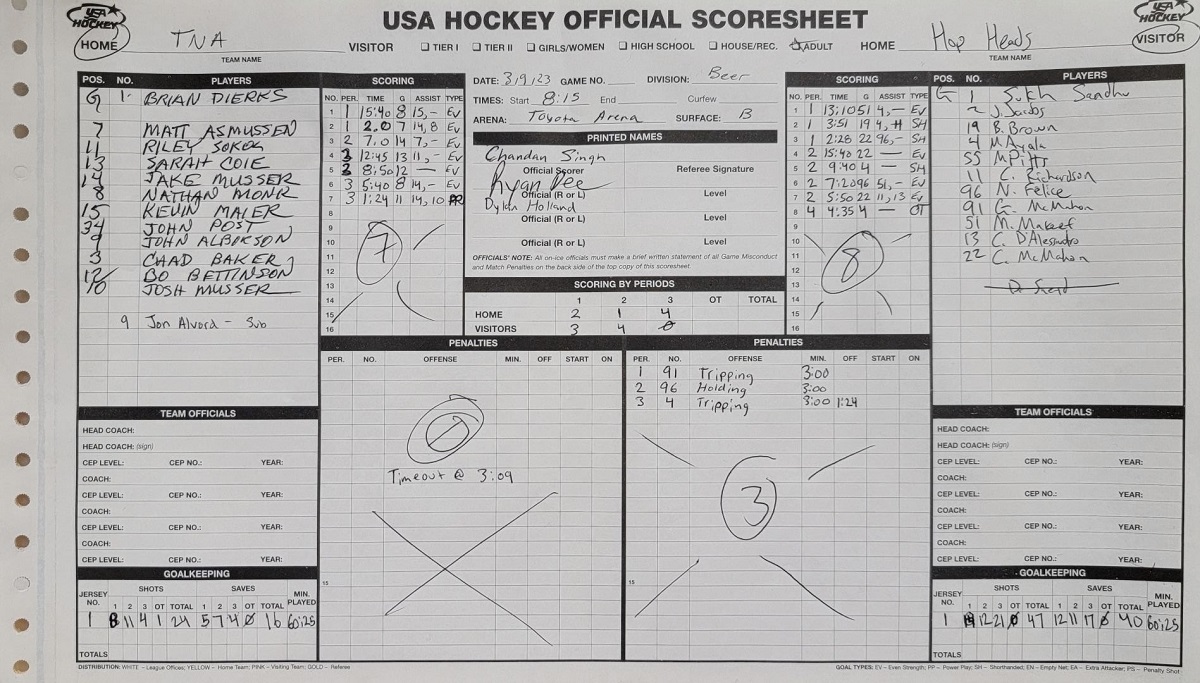 USA HOCKEY
USA HOCKEY OFFICIAL SCORESHEET
USA HOCKEY
HOME TNA VISITOR
TEAM NAME
☐ TIER I ☐ TIER II ☐ GIRLS/WOMEN ☐ HIGH SCHOOL ☐ HOUSE/REC. ☐ ADULT
HOME Hop Heads VISITOR
TEAM NAME
POS. NO. PLAYERS
G 1. BRIAN DIERKS
7 MATT ASMUSSEN
11 RILEY SOKOL
13 SARAH COIE
14 JAKE MUSSER
8 NATHAN MONK
15 KEVIN MAIER
34 JOHN POST
9 JOHN ALBIKSON
3 CHAD BAKER
12 BO BETTINSON
10 JOSH MUSSER
9 Jon Alvord - Sub
SCORING
NO. PER. TIME G ASSIST TYPE
1 1 15:40 8 15, - EV
2 1 2.0 7 14, 8 EV
3 2 7.0 14 7, - EV
4 3 12:45 13 11, - EV
5 3 8:50 12 — EV
6 3 5:40 8 14, - EV
7 3 1:24 11 14, 10 PP
8
9
10
11
12
13
14
15
16
7
DATE: 3/9/23 GAME NO. DIVISION: Beer
TIMES: Start 8:15 End Curfew
ARENA: Toyota Arena SURFACE: B
PRINTED NAMES
Chandan Singh
Official Scorer Referee Signature
Ryan Dee
Official (R or L) Level
Dylan Holland
Official (R or L) Level
Official (R or L) Level
OFFICIALS' NOTE: All on-ice officials must make a brief written statement of all Game Misconduct
and Match Penalties on the back side of the top copy of this scoresheet.
SCORING BY PERIODS
1 2 3 OT TOTAL
HOME 2 1 4
VISITORS 3 4 0
SCORING
NO. PER. TIME G ASSIST TYPE
1 1 13:10 51 4, — EV
2 1 3:51 19 4, 11 SH
3 1 2:28 22 96, - EV
4 2 15:40 22 — EV
5 2 9:40 4 — SH
6 2 7:20 96 51, - EV
7 2 5:50 22 11, 13 EV
8 4 4:35 4 — OT
9
10
11
12
13
14
15
16
8
POS. NO. PLAYERS
G 1 Sukh Sandhu
2 J. Jacobs
19 B. Brown
4 M. Ayala
55 M. Pitts
11 C. Richardson
96 N. Felice
91 G. McMahon
51 M. Makeef
13 C. D'Alesandro
22 C. McMahon
PENALTIES
PER. NO. OFFENSE MIN. OFF START ON
0
Timeout @ 3:09
15
PENALTIES
PER. NO. OFFENSE MIN. OFF START ON
1 91 Tripping 3:00
2 96 Holding 3:00
3 4 Tripping 3:00 1:24
3
15
TEAM OFFICIALS
HEAD COACH:
HEAD COACH: (sign)
CEP LEVEL: CEP NO.: YEAR:
COACH:
CEP LEVEL: CEP NO.: YEAR:
COACH:
CEP LEVEL: CEP NO.: YEAR:
COACH:
CEP LEVEL: CEP NO.: YEAR:
GOALKEEPING
JERSEY NO. SHOTS SAVES MIN. PLAYED
1 2 3 OT TOTAL 1 2 3 OT TOTAL
1 8 11 4 1 24 5 7 4 0 16 60:25
TOTALS
TEAM OFFICIALS
HEAD COACH:
HEAD COACH: (sign)
CEP LEVEL: CEP NO.: YEAR:
COACH:
CEP LEVEL: CEP NO.: YEAR:
COACH:
CEP LEVEL: CEP NO.: YEAR:
COACH:
CEP LEVEL: CEP NO.: YEAR:
GOALKEEPING
JERSEY NO. SHOTS SAVES MIN. PLAYED
1 2 3 OT TOTAL 1 2 3 OT TOTAL
1 14 12 21 0 47 12 11 17 0 40 60:25
TOTALS
DISTRIBUTION: WHITE – League Offices; YELLOW – Home Team; PINK – Visiting Team; GOLD – Referee
GOAL TYPES: EV – Even Strength; PP – Power Play; SH – Shorthanded; EN – Empty Net; EA – Extra Attacker; PS – Penalty Shot